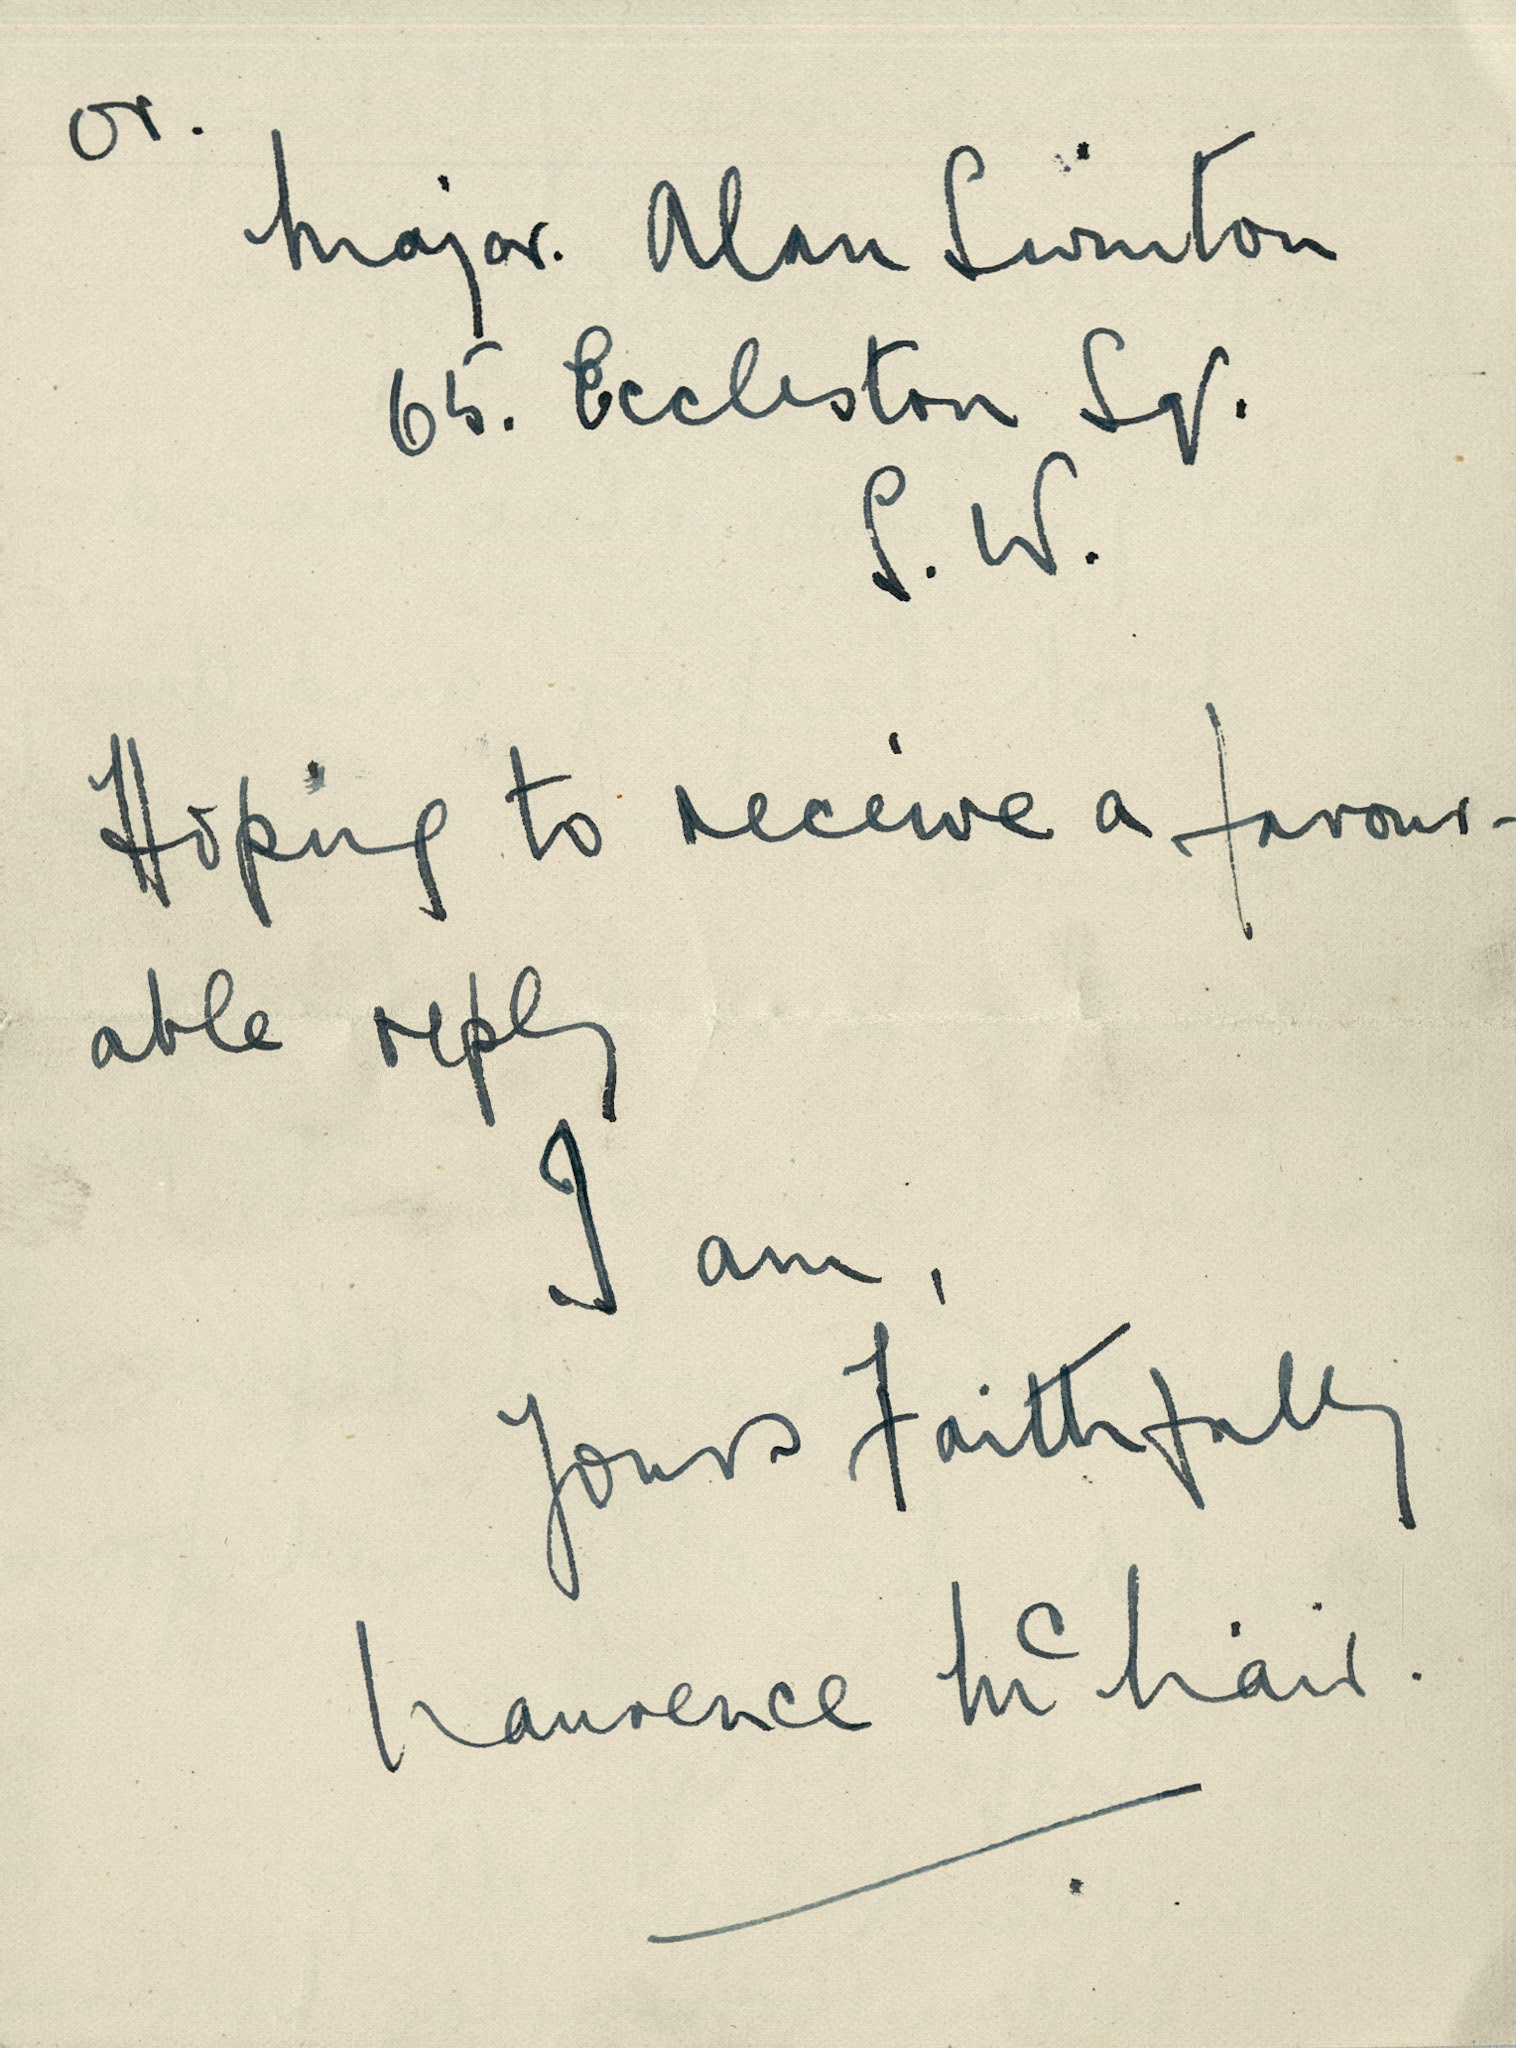 or.
Major. Alan Swinton
65. Eccleston Sq.
S. W.
Hoping to receive a favour-
able reply
I am,
Yours Faithfully
Laurence McNair.